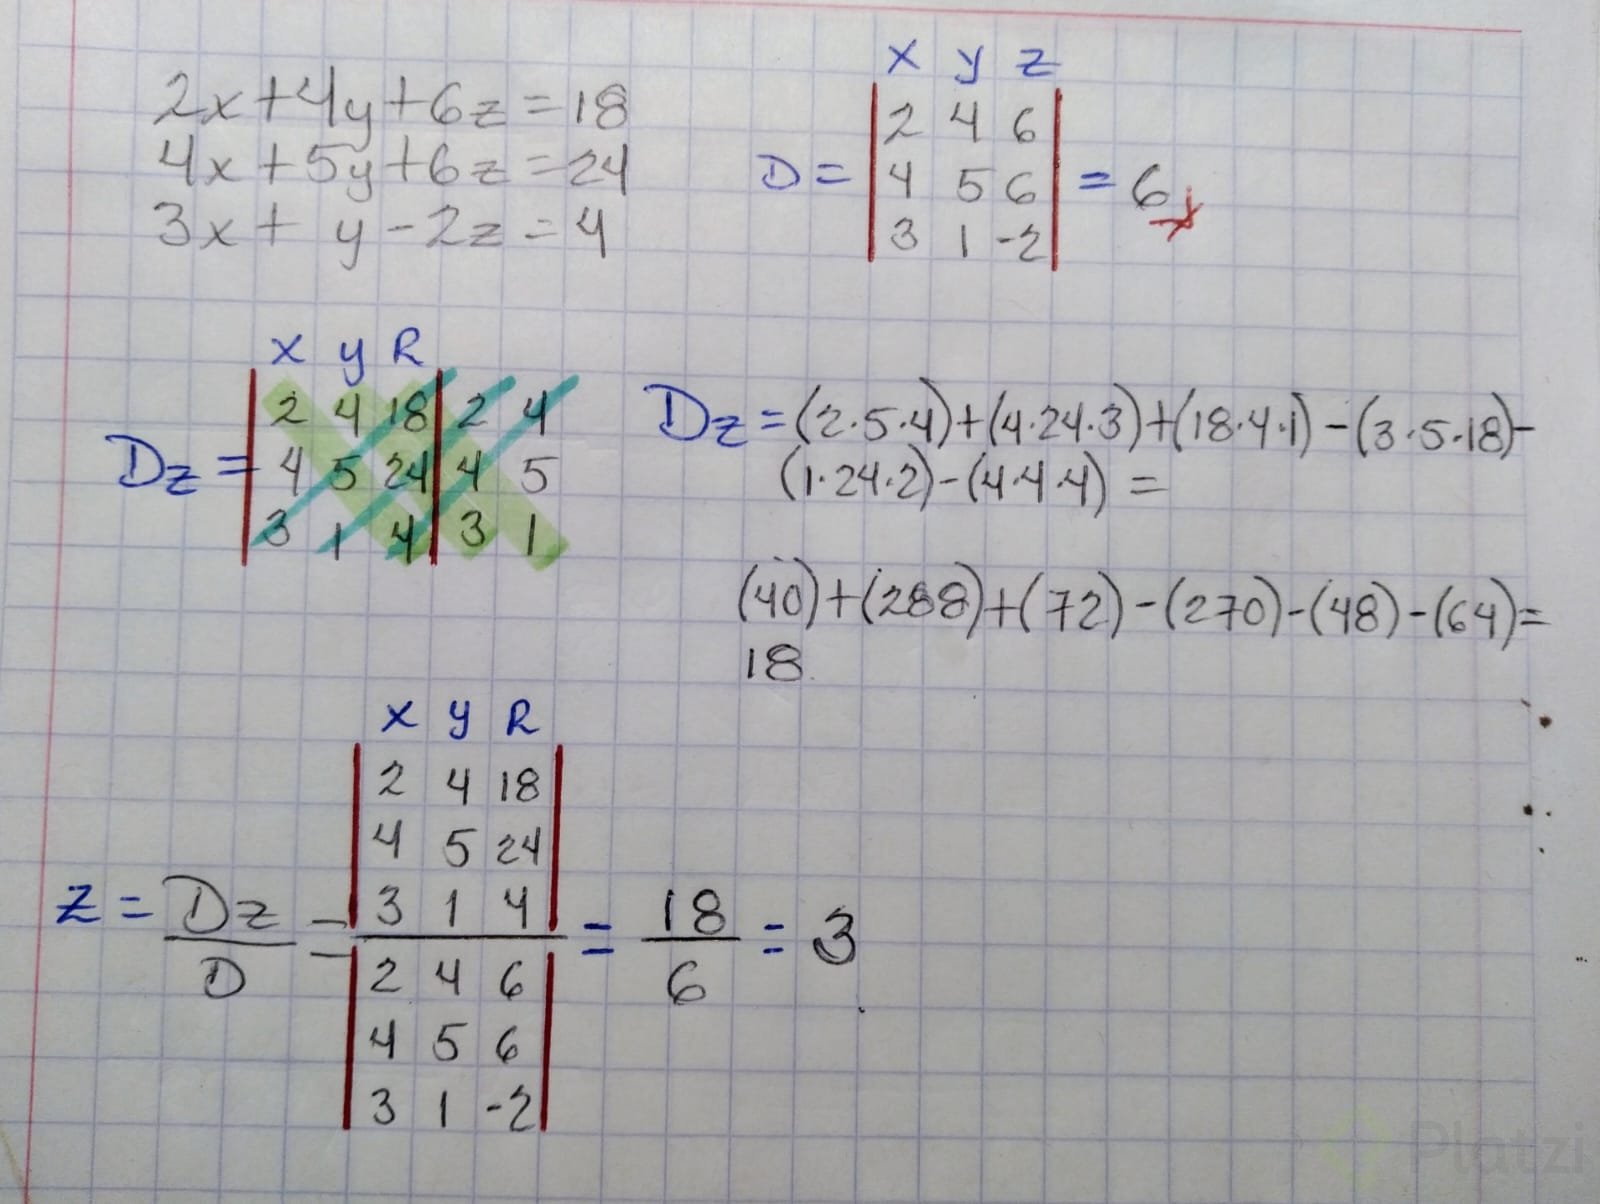 2x+4y+6z=18
4x+5y+6z=24
3x+ y-2z=4
x y z
2 4 6
D= 4 5 6 = 6
3 1 -2
x y R
2 4 18 2 4
Dz= 4 5 24 4 5
3 1 4 3 1
Dz=(2·5·4)+(4·24·3)+(18·4·1)-(3·5·18)-
(1·24·2)-(4·4·4)=
(40)+(288)+(72)-(270)-(48)-(64)=
18
x y R
2 4 18
4 5 24
3 1 4
z = Dz/D = = 18/6 = 3
2 4 6
4 5 6
3 1 -2
Platzi